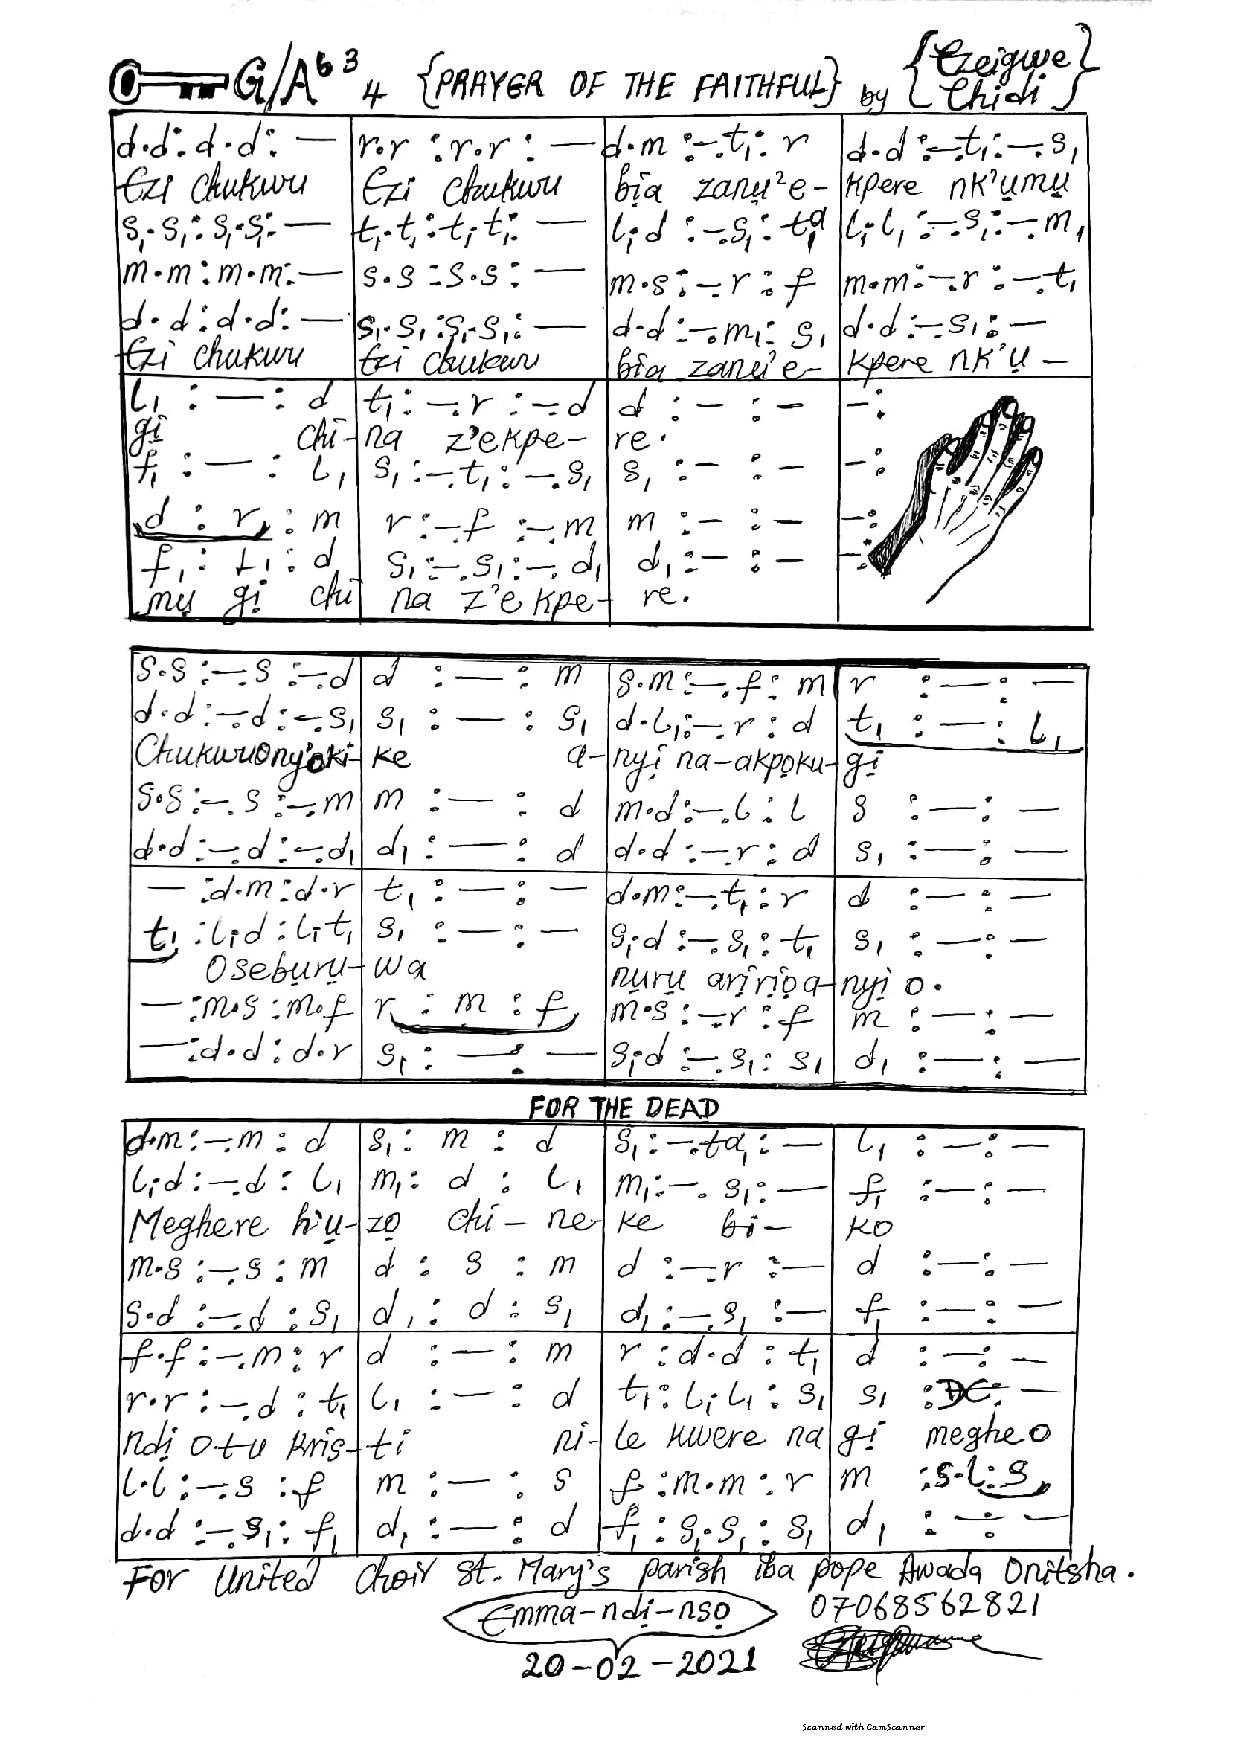 G/Ab 3 4 {PRAYER OF THE FAITHFUL} by {Ezeigwe Chidi}
d.d:d.d:— | r.r :r.r :— | d.m :—.t₁: r | d.d :—.t₁:—.s₁
Ezi chukwu | Ezi chukwu | bịa zanụ'e- | kpere nk'ụmụ
s₁.s₁:s₁.s₁:— | t₁.t₁:t₁.t₁:— | l₁.d :—.s₁: ta₁ | l₁.l₁ :—.s₁:—.m₁
m.m:m.m:— | s.s :s.s: — | m.s:—.r : f | m.m:—.r :—.t₁
d.d:d.d:— | s₁.s₁:s₁.s₁:— | d.d:—.m₁: s₁ | d.d:—.s₁:—
Ezi chukwu | Ezi chukwu | bịa zanụ'e- | kpere nk'ụ-
l₁ : — : d | t₁:—.r :—.d | d : — : — | —:
gị chi- | na z'ekpe- | re.
f₁ : — : l₁ | s₁ :—.t₁:—.s₁ | s₁ : — : — | —:
d : r : m | r :—.f :—.m | m : — : — | —:
f₁ : f₁ : d₁ | s₁:—.s₁:—.d₁ | d₁ : — : — | —:
mụ gị chi | na z'ekpe- | re.
s.s :—.s :—.d | d : — : m | s.m:—.f: m | r : — : —
d.d:—.d:—.s₁ | s₁ : — : s₁ | d.l₁:—.r : d | t₁ : — : l₁
Chukwuony'oki- | ke a- | nyị na-akpọku- | gị
s.s :—.s :—.m | m : — : d | m.d:—.l : l | s : — : —
d.d:—.d:—.d₁ | d₁ : — : d | d.d :—.r : d | s₁ : — : —
— :d.m :d.r | t₁ : — : — | d.m:—.t₁: r | d : — : —
t₁ :l₁.d :l₁.t₁ | s₁ : — : — | s₁.d :—.s₁ : t₁ | s₁ : — : —
Oseburu- | wa | nụrụ arịrịọa- | nyị o.
— :m.s :m.f | r : m : f | m.s :—.r : f | m : — : —
— :d.d : d.r | s₁ : — : — | s₁.d :—.s₁: s₁ | d₁ : — : —
FOR THE DEAD
d.m:—.m : d | s₁ : m : d | s₁ :—.ta₁ : — | l₁ : — : —
l₁.d :—.d : l₁ | m₁: d : l₁ | m₁:—.s₁:— | f₁ : — : —
Meghere h'ụ- | zọ chi- ne- | ke bi- | ko
m.s :—.s : m | d : s : m | d :—.r :— | d : — : —
s.d :—.d : s₁ | d₁ : d : s₁ | d₁ :—.s₁ :— | f₁ : — : —
f.f :—.m : r | d : — : m | r : d.d : t₁ | d : — : —
r.r :—.d : t₁ | l₁ : — : d | t₁: l₁.l₁ : s₁ | s₁ :DC: —
ndị otu kris- | ti ni- | le kwere na | gị megheo
l.l :—.s : f | m : — : s | f : m.m : r | m :s.l: s
d.d :—.s₁: f₁ | d₁ : — : d | f₁ : s₁.s₁ : s₁ | d₁ : — : —
For United Choir St. Mary's parish iba pope Awada Onitsha.
Emma-ndị-nsọ 07068562821
20-02-2021
Scanned with CamScanner